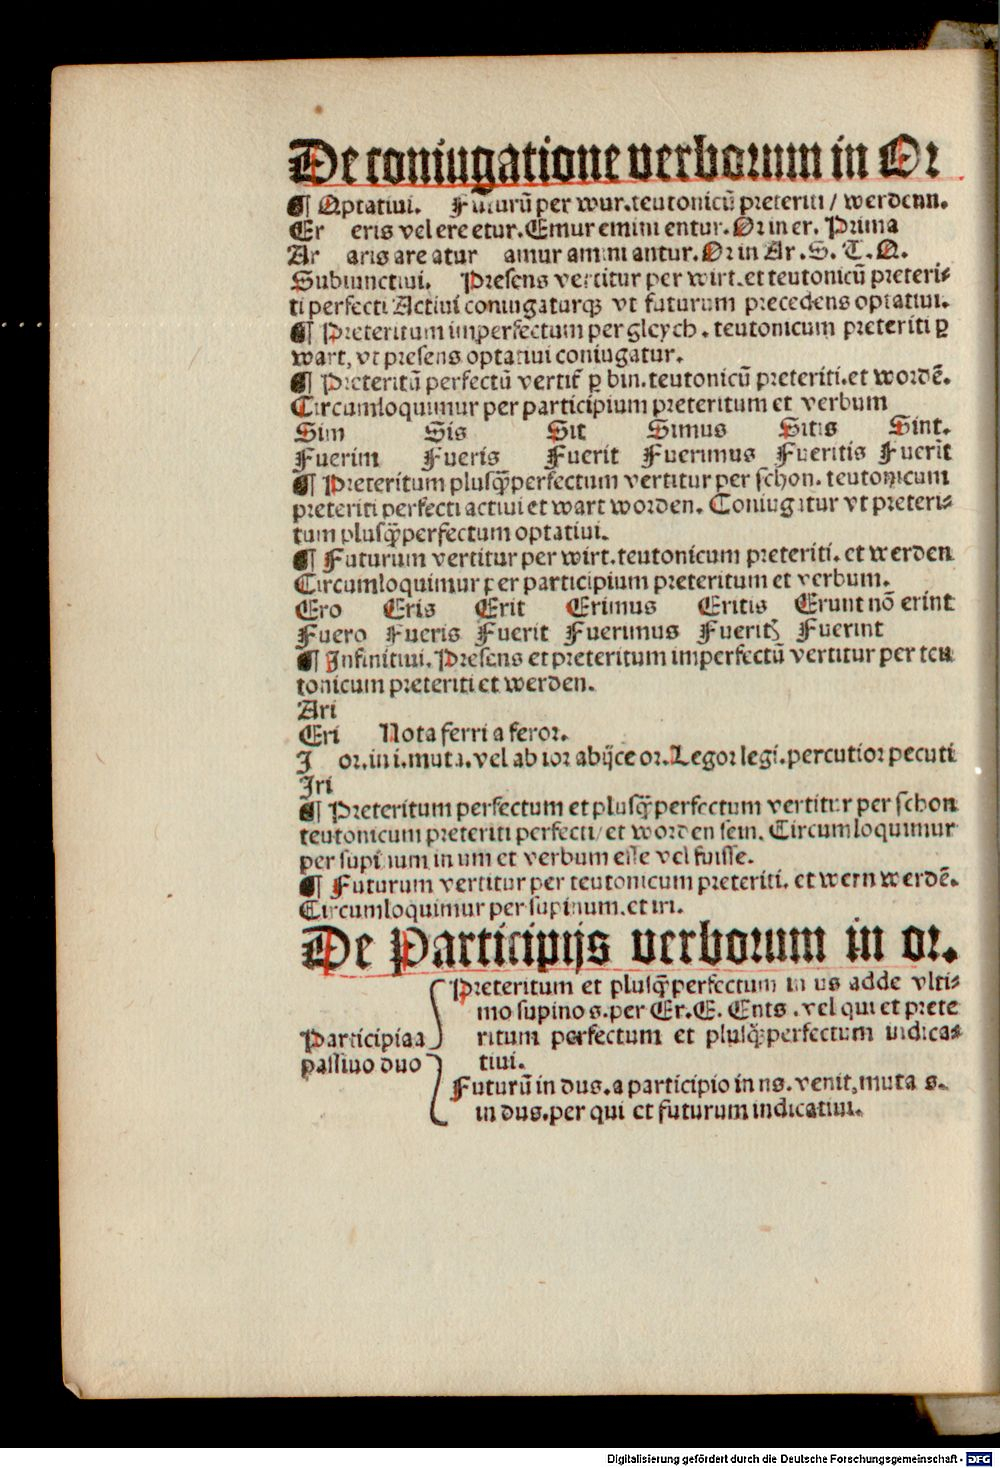 De coniugatione verborum in Or
¶ Optatiui. Futurū per wur. teutonicū preteriti / werdenn.
Er eris vel ere etur. Emur emini entur. Or in er. Prima
Ar aris are atur amur amini antur. Or in Ar. S. T. Q.
Subiunctiui. Presens vertitur per wirt. et teutonicū preteri⸗
ti perfecti Actiui coniugaturqꝫ vt futurum precedens optatiui.
¶ Preteritum imperfectum per gleych. teutonicum preteriti ꝑ
wart, vt presens optatiui coniugatur.
¶ Preteritū perfectū vertit᷑ ꝑ bin. teutonicū preteriti. et wordē.
Circumloquimur per participium preteritum et verbum
Sim Sis Sit Simus Sitis Sint.
Fuerim Fueris Fuerit Fuerimus Fueritis Fuerīt
¶ Preteritum plusq̃perfectum vertitur per schon. teutonicum
preteriti perfecti actiui et wart worden. Coniugatur vt preteri⸗
tum plusq̃perfectum optatiui.
¶ Futurum vertitur per wirt. teutonicum preteriti. et werden
Circumloquimur per participium preteritum et verbum.
Ero Eris Erit Erimus Eritis Erunt nō erint
Fuero Fueris Fuerit Fuerimus Fueritꝭ Fuerint
¶ Infinitiui. Presens et preteritum imperfectū vertitur per teu
tonicum preteriti et werden.
Ari
Eri Nota ferri a feror.
I or. in i. muta. vel ab ior abijce or. Legor legi. percutior pecuti
Iri
¶ Preteritum perfectum et plusq̃perfectum vertitur per schon
teutonicum preteriti perfecti / et worden sein. Circumloquimur
per supinum in um et verbum esse vel fuisse.
¶ Futurum vertitur per teutonicum preteriti. et wern werdē.
Circumloquimur per supinum. et iri.
De Participijs verborum in or.
Preteritum et plusq̃perfectum in us adde vlti⸗
mo supino s. per Er. E. Ents. vel qui et prete
Participia a ritum perfectum et plusq̃perfectum indica⸗
passiuo duo tiui.
Futurū in dus. a participio in ns. venit, muta s.
in dus. per qui et futurum indicatiui.
Digitalisierung gefördert durch die Deutsche Forschungsgemeinschaft - DFG